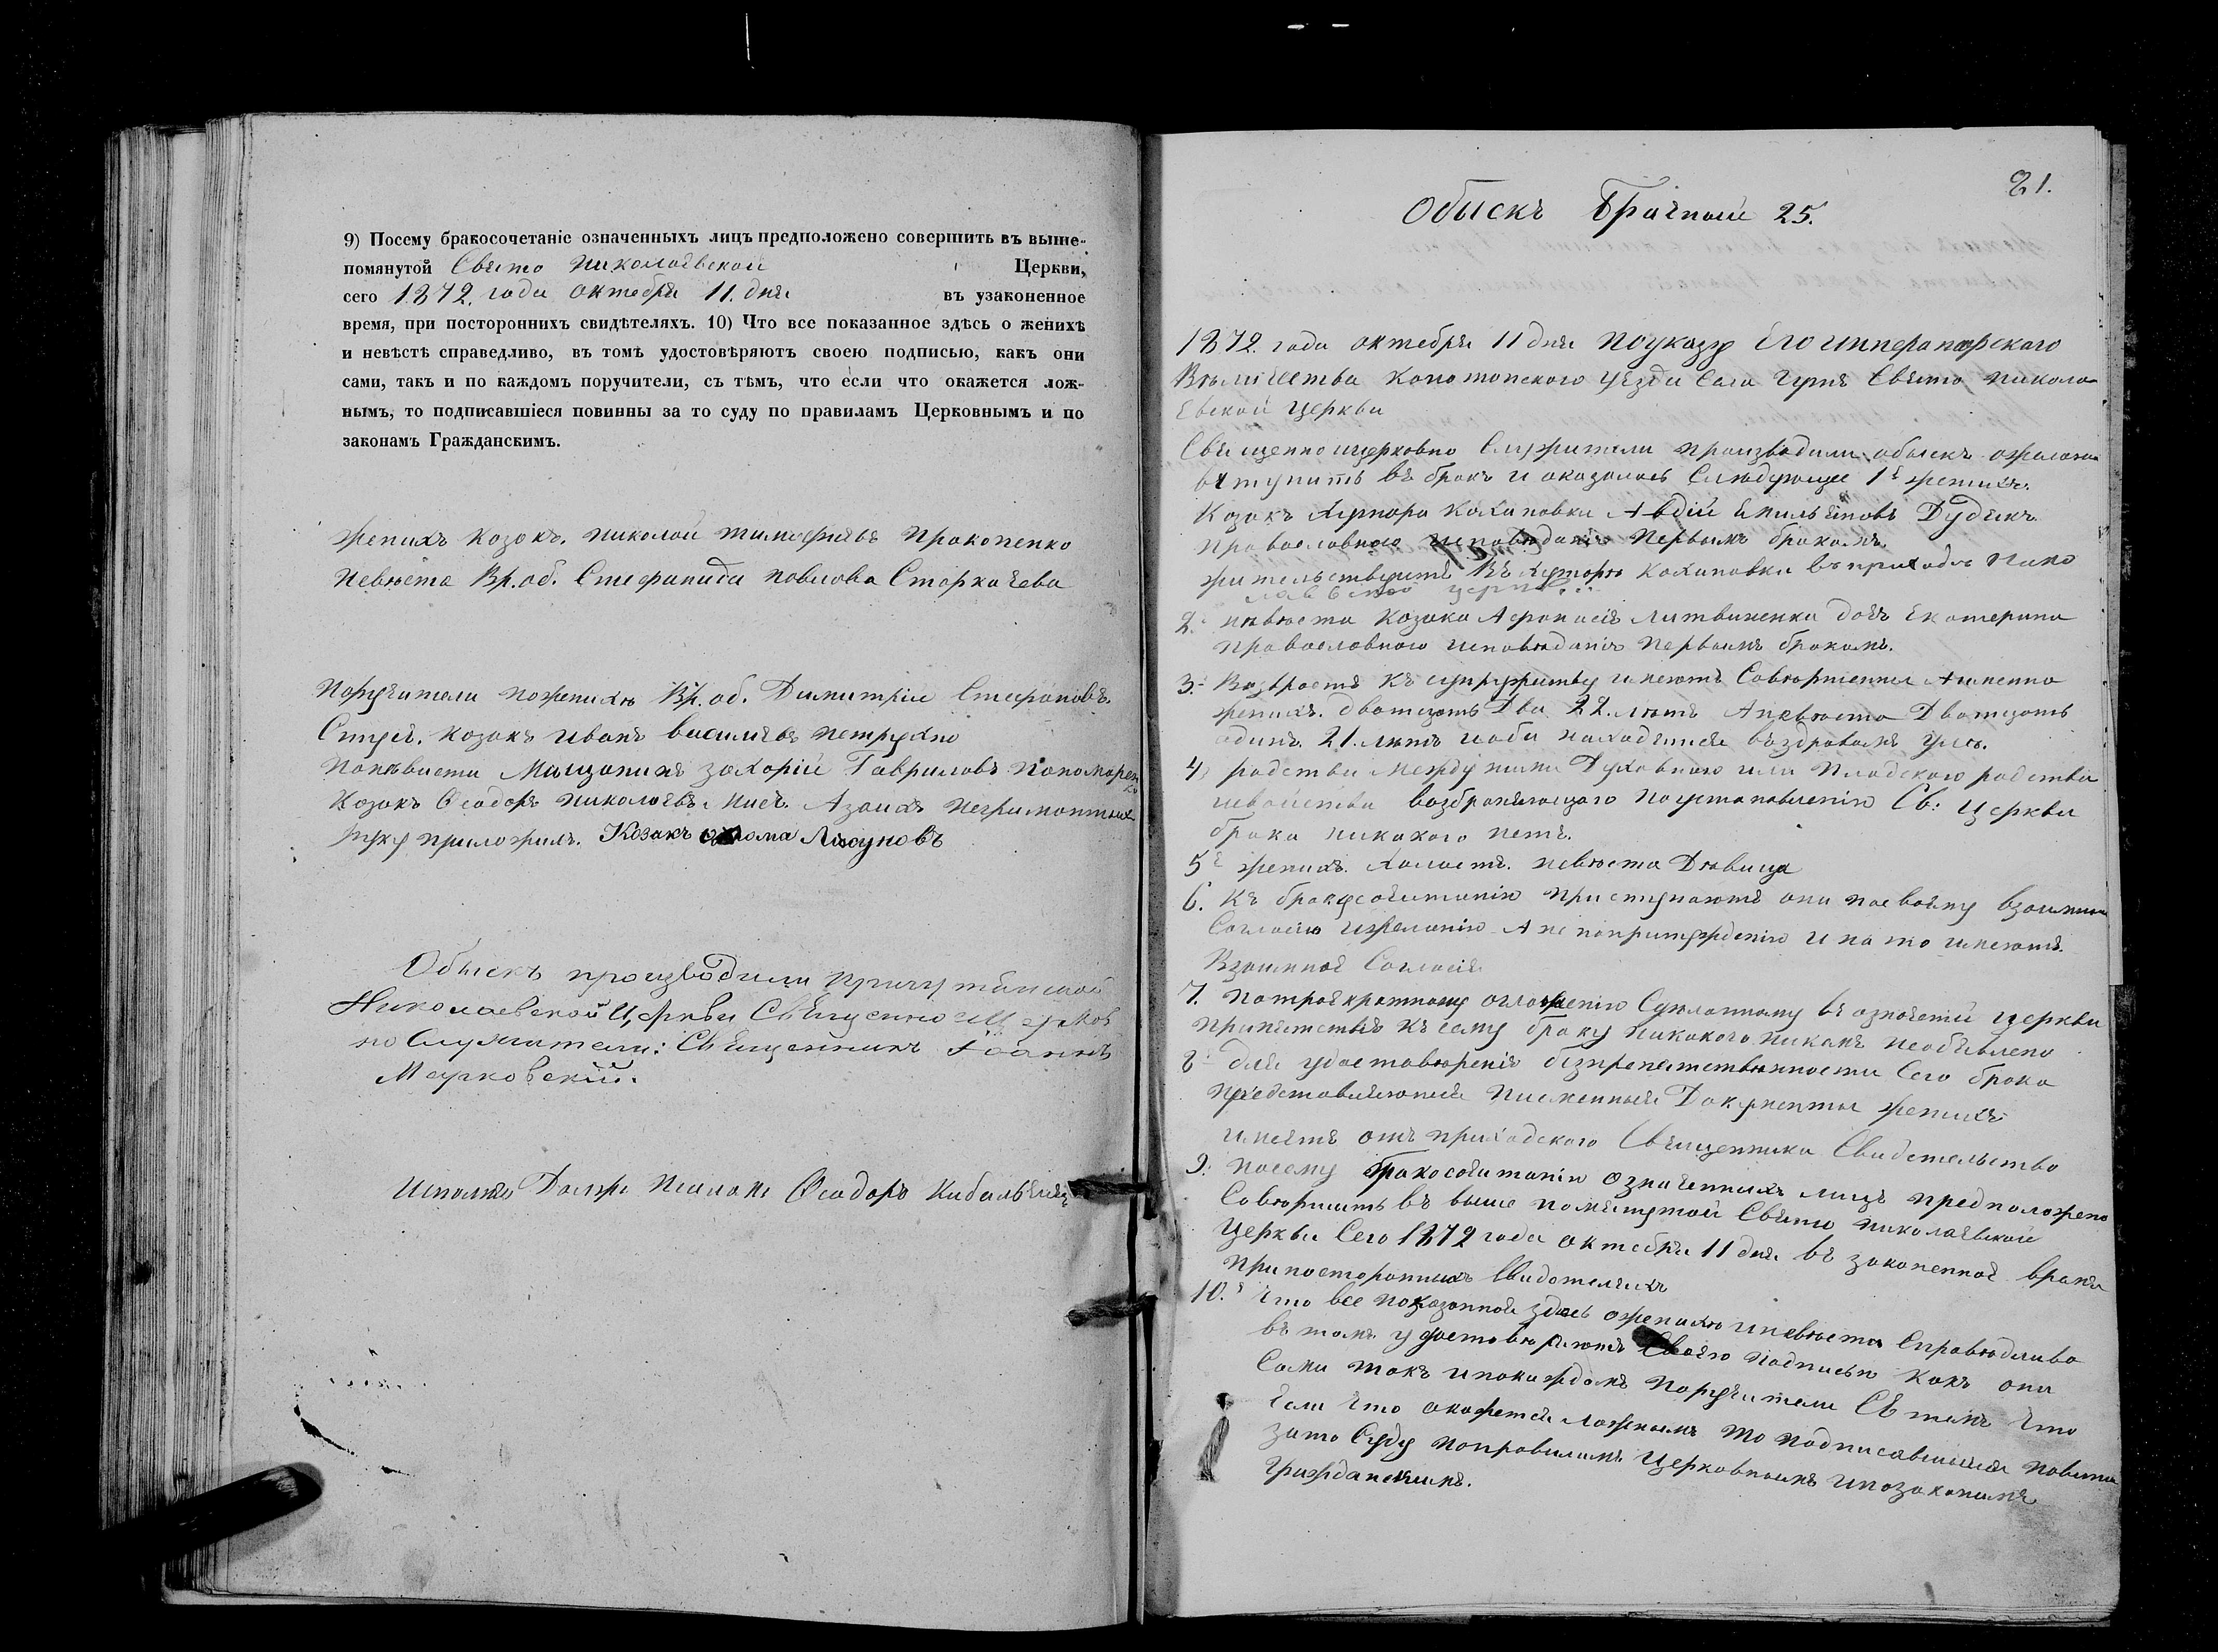 9) Посему бракосочетаніе означенныхъ лицъ предположено совершить въ выше-
помянутой Свято Николаевской Церкви,
сего 1872. года октября 11. дня въ узаконенное
время, при постороннихъ свидѣтеляхъ. 10) Что все показанное здѣсь о женихѣ
и невѣстѣ справедливо, въ томъ удостовѣряютъ своею подписью, какъ они
сами, такъ и по каждомъ поручители, съ тѣмъ, что если что окажется лож-
нымъ, то подписавшіеся повинны за то суду по правиламъ Церковнымъ и по
законамъ Гражданскимъ.
женихъ козакъ. николай тимофѣевъ Прокопенко
невѣста Вр. об. Стефанида павлова Сторкачева
Поручители пожениху Вр. об. Димитрій Стефановъ
козакъ иванъ васильевъ петрухно
поневѣсти Мѣщанинъ захорій Гавриловъ Пономарен
ко
Козакъ Ѳеодоръ николаевъ Азаихъ неграмотныхъ
руку приложилъ. Козакъ Фома Ласуновъ
Обыскъ производили
Николаевской Церкви Священно Церков
но Служители: Священникъ Іоаннъ
Марковскій.
Исполняя Долж: Псалом: Ѳеодоръ Кибальчичъ
21.
Обыскъ Брачный 25.
1872. года октября 11 дня поуказу Его императорскаго
Величества Конотопскаго уѣзда села Свято никола
евской церкви
Священно ицерковно Служители производили обыскъ ожелающихъ
вступить въ бракъ и оказалось Слѣдующее 1е женихъ.
Козакъ Хутора Кахановки Авдій Дудекъ
православнаго исповѣданія первымъ бракомъ.
жительствуетъ въ хуторѣ Кахановки въ приходѣ Нико
лаевской церкви
2. невѣста козака Афанасія Литвиненка дочь Екатерина
православнаго исповѣданія первымъ бракомъ.
3. Возврастъ къ супружеству имеютъ Совершенный Аименно
женихъ. двадцать Два 22. лѣтъ Аневѣста Двадцать
одинъ. 21. лѣтъ иоба находятся въздравомъ умѣ.
4) родства между ними Духовнаго или Плодскаго родства
исвойства возбраняющаго поустановленію Св: Церкви
брака никакого нетъ.
5е женихъ. Холостъ. невѣста Дѣвица
6. Къ бракусочитанію приступаютъ они посвоему взаимному
Согласію ижеланію А не попринужденію и на то имеютъ.
Взаимное Согласіе
7. потроекратному оглашенію Сдѣланному въ означеной церкви
припятствія къ сему браку никакого никемъ необъявлено
8. для удостовѣренія безпрепятственности сего брака
представляются писменные Документы женихъ
имеетъ отъ приходскаго Священника Свидетельство
9. посему бракосочитаніи означенныхъ лицъ предположено
Совершить въ выше помянутой Свято николаевской
Церкви Сего 1872 года октября 11 дня въ законенное время
припосторонныхъ Свидетеляхъ
10.е что все показанное здѣсь оженихѣ иневѣста Справѣдливо
въ томъ удостовѣряютъ Своею подписью какъ они
Сами такъ ипокаждомъ поручители Съ темъ что
Если что окажетси ложнымъ то подписавшіися повины
зато Суду поправиламъ Церковнымъ ипозаконамъ
Гражданскимъ.